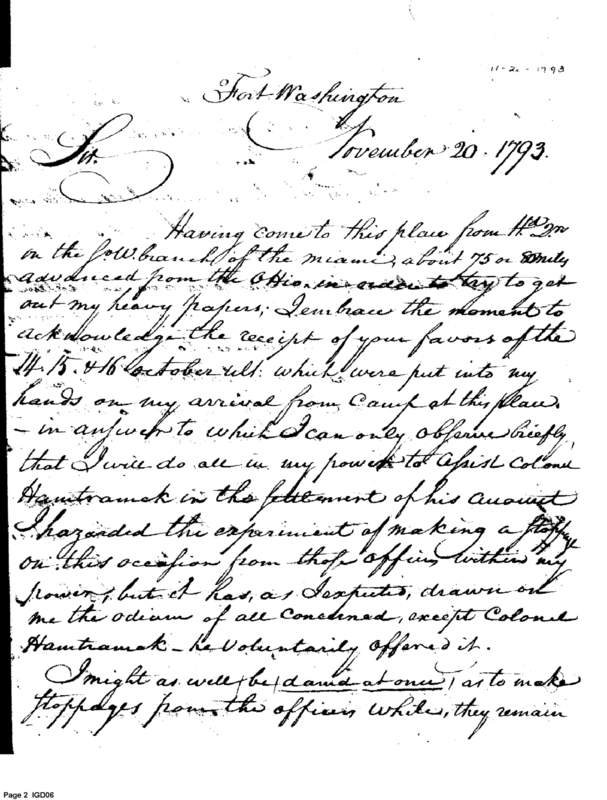 11-20-1793
Fort Washington
November 20. 1793.
Sir.
Having come to this place from Hd. Qrs
on the S.W. branch of the miami, about 75 or 80 miles
advanced from the Ohio, in order to try to get
out my heavy papers; I embrace the moment to
acknowledge the receipt of your favors of the
14. 15. & 16 october ult: which were put into my
hands on my arrival from Camp at this place.
– in answer to which I can only observe briefly,
that I will do all in my power to assist Colonel
Hamtramck in the settlement of his account
I hazarded the experiment of making a stoppage
on this occasion from those officers within my
power, but it has, as I expected, drawn on
me the odium of all concerned, except Colonel
Hamtramck – he voluntarily offered it.
I might as well (be damd at once) as to make
stoppages from the officers while, they remain
Page 2 IGD06